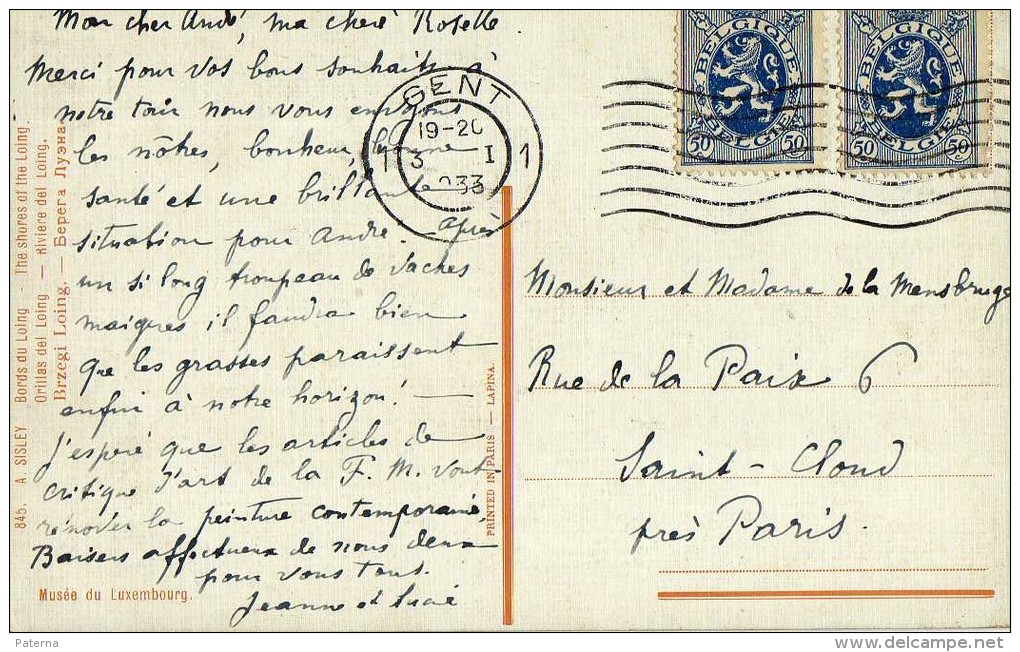 Mon cher André, ma chère Roselle
Merci pour vos bons souhaits à
notre tour nous vous envoyons
les nôtres, bonheur, bonne
santé et une brillante
situation pour André. Après
un si long troupeau de vaches
maigres il faudra bien
que les grasses paraissent
enfin à notre horizon! —
J'espère que les articles de
critique d'art de la F. M. vont
rénover la peinture contemporaine
Baisers affectueux de nous deux
pour vous tous.
Jeanne et Lucie
845. A SISLEY Bords du Loing - The shores of the Loing
Orillas del Loing — Riviere del Loing,
Brzegi Loing. — Берега Луэна
Musée du Luxembourg.
PRINTED IN PARIS — LAPINA.
GENT
19-20
1 3 I 1
933
BELGIQUE
BELGIË
50 50
BELGIQUE
BELGIË
50 50
Monsieur et Madame de la Mensbruge
Rue de la Paix 6
Saint-Cloud
près Paris.
Paterna
delcampe.net